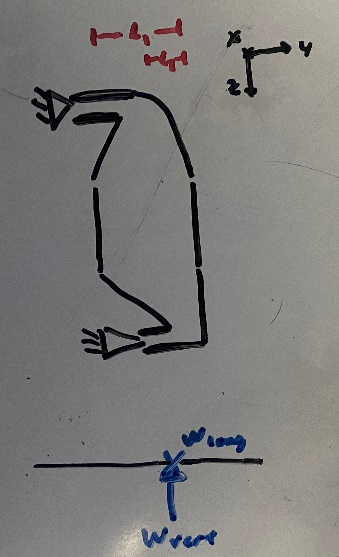 L₁
L₂
x
y
z
Wlong
Wvert